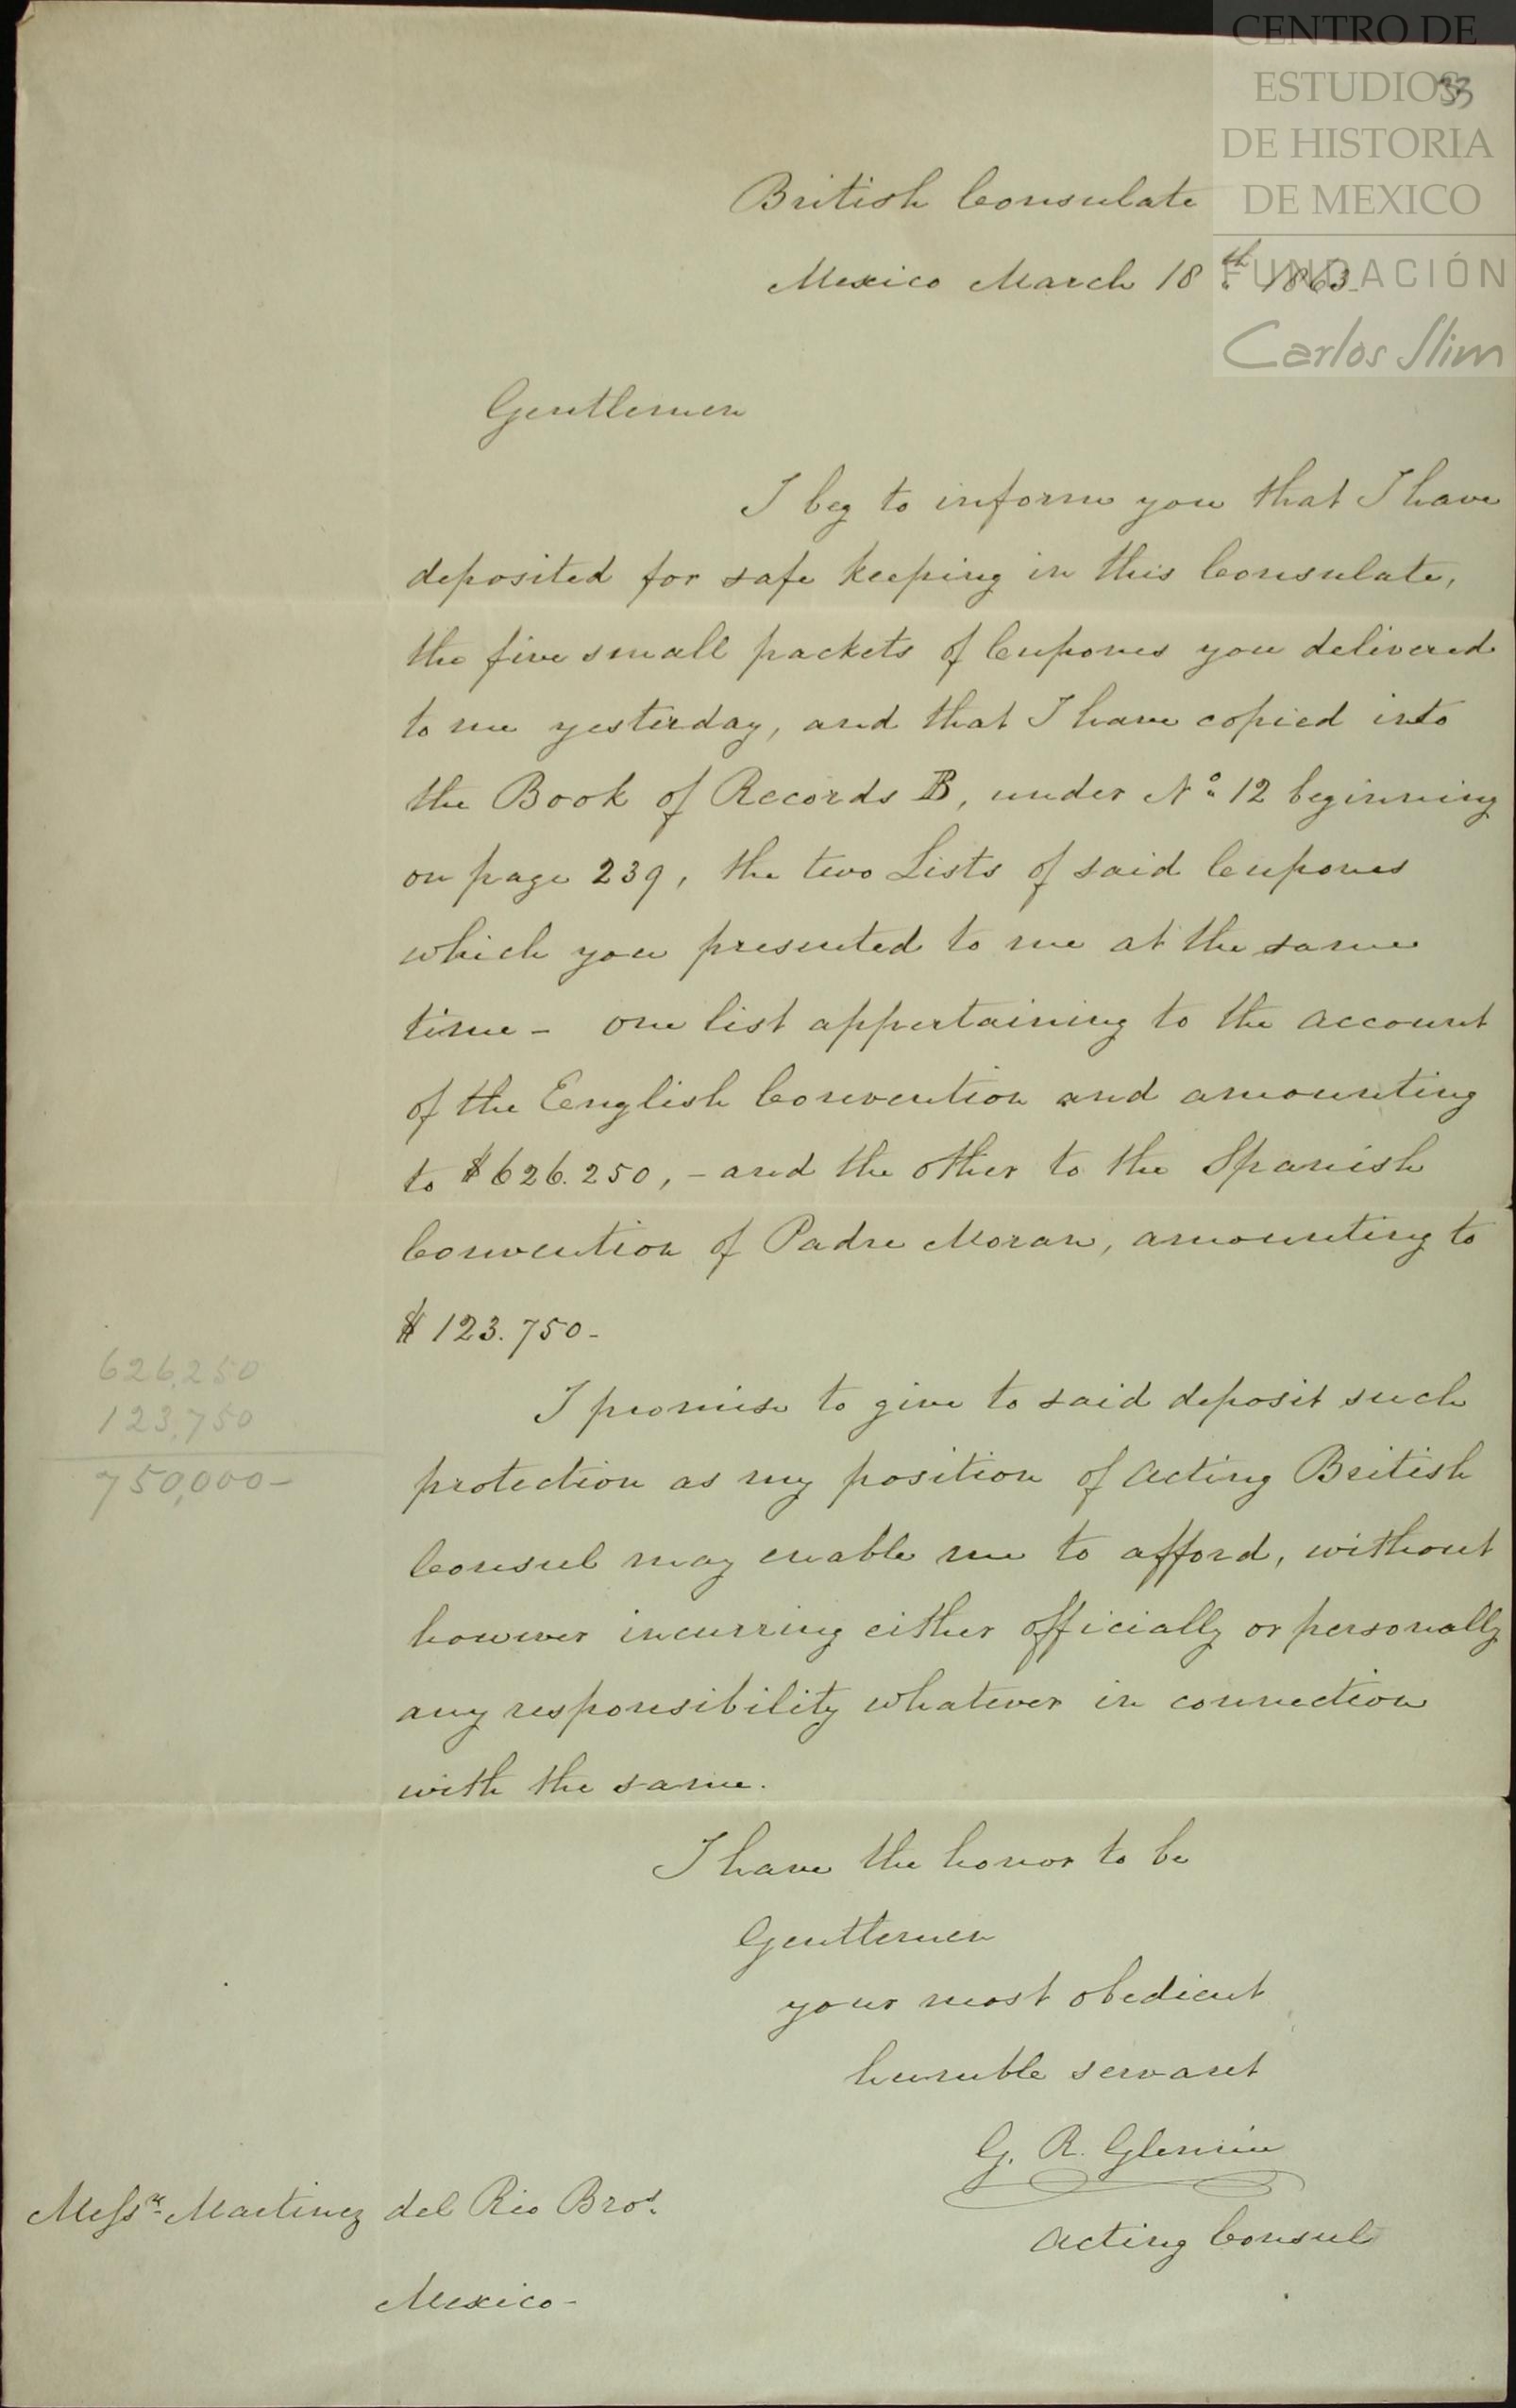 CENTRO DE
ESTUDIOS
DE HISTORIA
DE MEXICO
FUNDACIÓN
Carlos Slim
33
British Consulate
Mexico March 18th 1863-
Gentlemen
I beg to inform you that I have
deposited for safe keeping in this Consulate,
the five small packets of Cupones you delivered
to me yesterday, and that I have copied into
the Book of Records B, under No 12 beginning
on page 239, the two Lists of said Cupones
which you presented to me at the same
time - one list appertaining to the account
of the English Convention and amounting
to $626.250, - and the other to the Spanish
Convention of Padre Moran, amounting to
$123.750-
626,250
123,750
750,000-
I promise to give to said deposit such
protection as my position of acting British
Consul may enable me to afford, without
however incurring either officially or personally
any responsibility whatever in connection
with the same.
I have the honor to be
Gentlemen
your most obedient
humble servant
G. R. Glennie
Acting Consul
Messrs Martinez del Rio Bros.
Mexico-